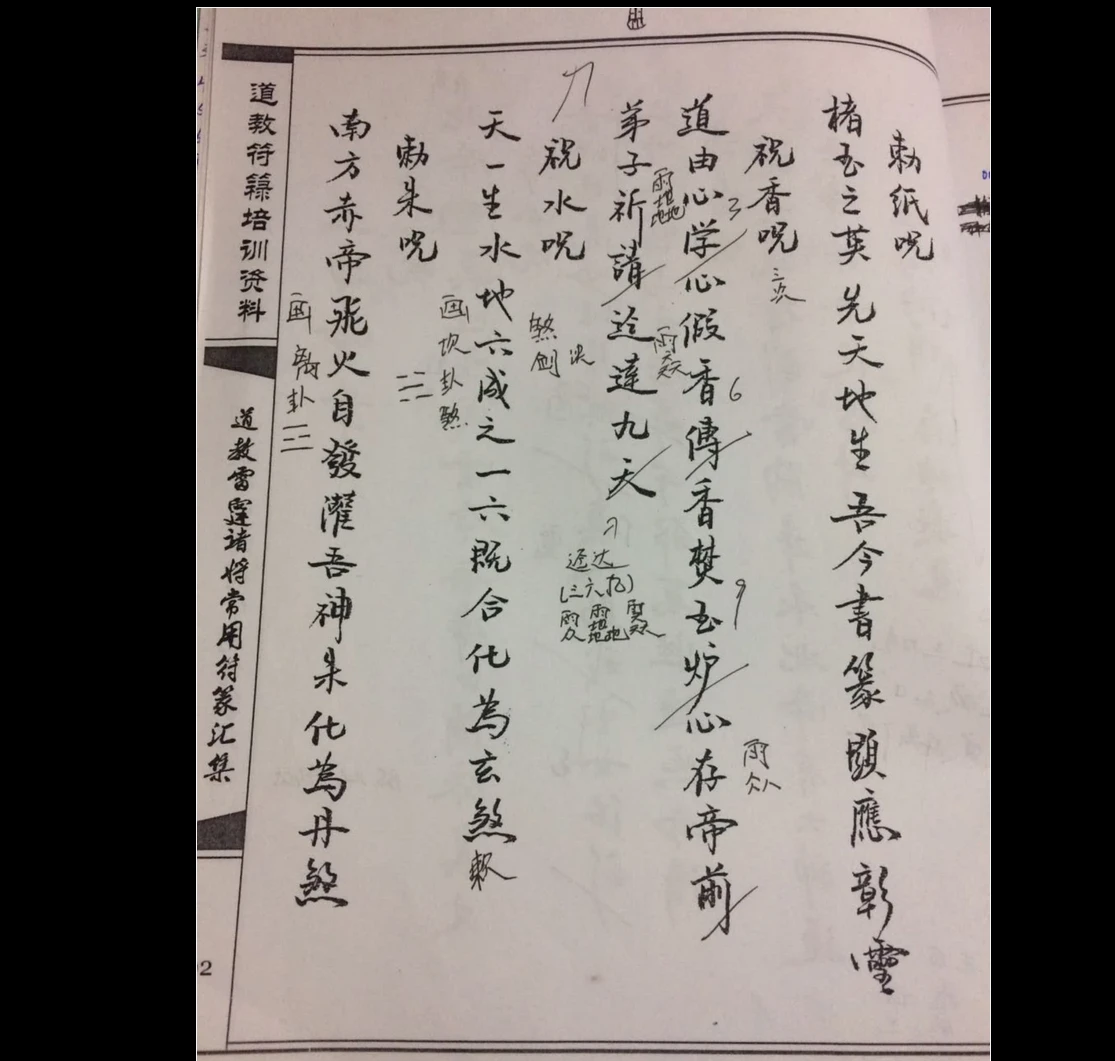 勅纸咒
楮玉之英先天地生吾今書篆顕應彰靈
祝香咒
三次
道由心学心假香傳香焚玉炉心存帝前
3
6
9
弟子祈請迳達九天
通达
(三六九)
祝水咒
煞剑决
天一生水地六成之一六既合化為玄煞
画坎卦煞
勅朱咒
南方赤帝飛火自發灌吾神朱化為丹煞
画离卦
道教符箓培训资料
道教雷霆诸将常用符篆汇集
2